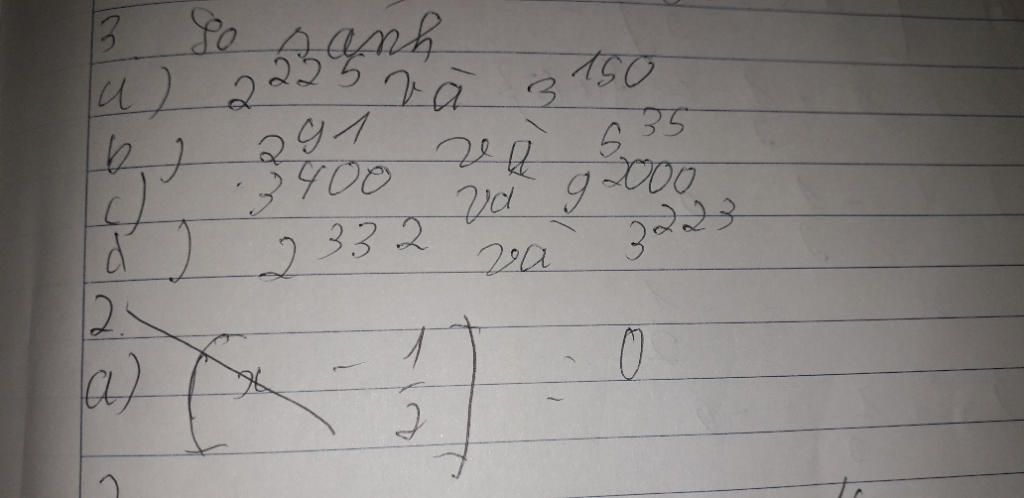 3. So sanh
a) 2^225 và 3^150
b) 2^91 và 5^35
c) 3^400 và 9^2000
d) 2^332 và 3^223
2.
a) (x - 1/2) = 0